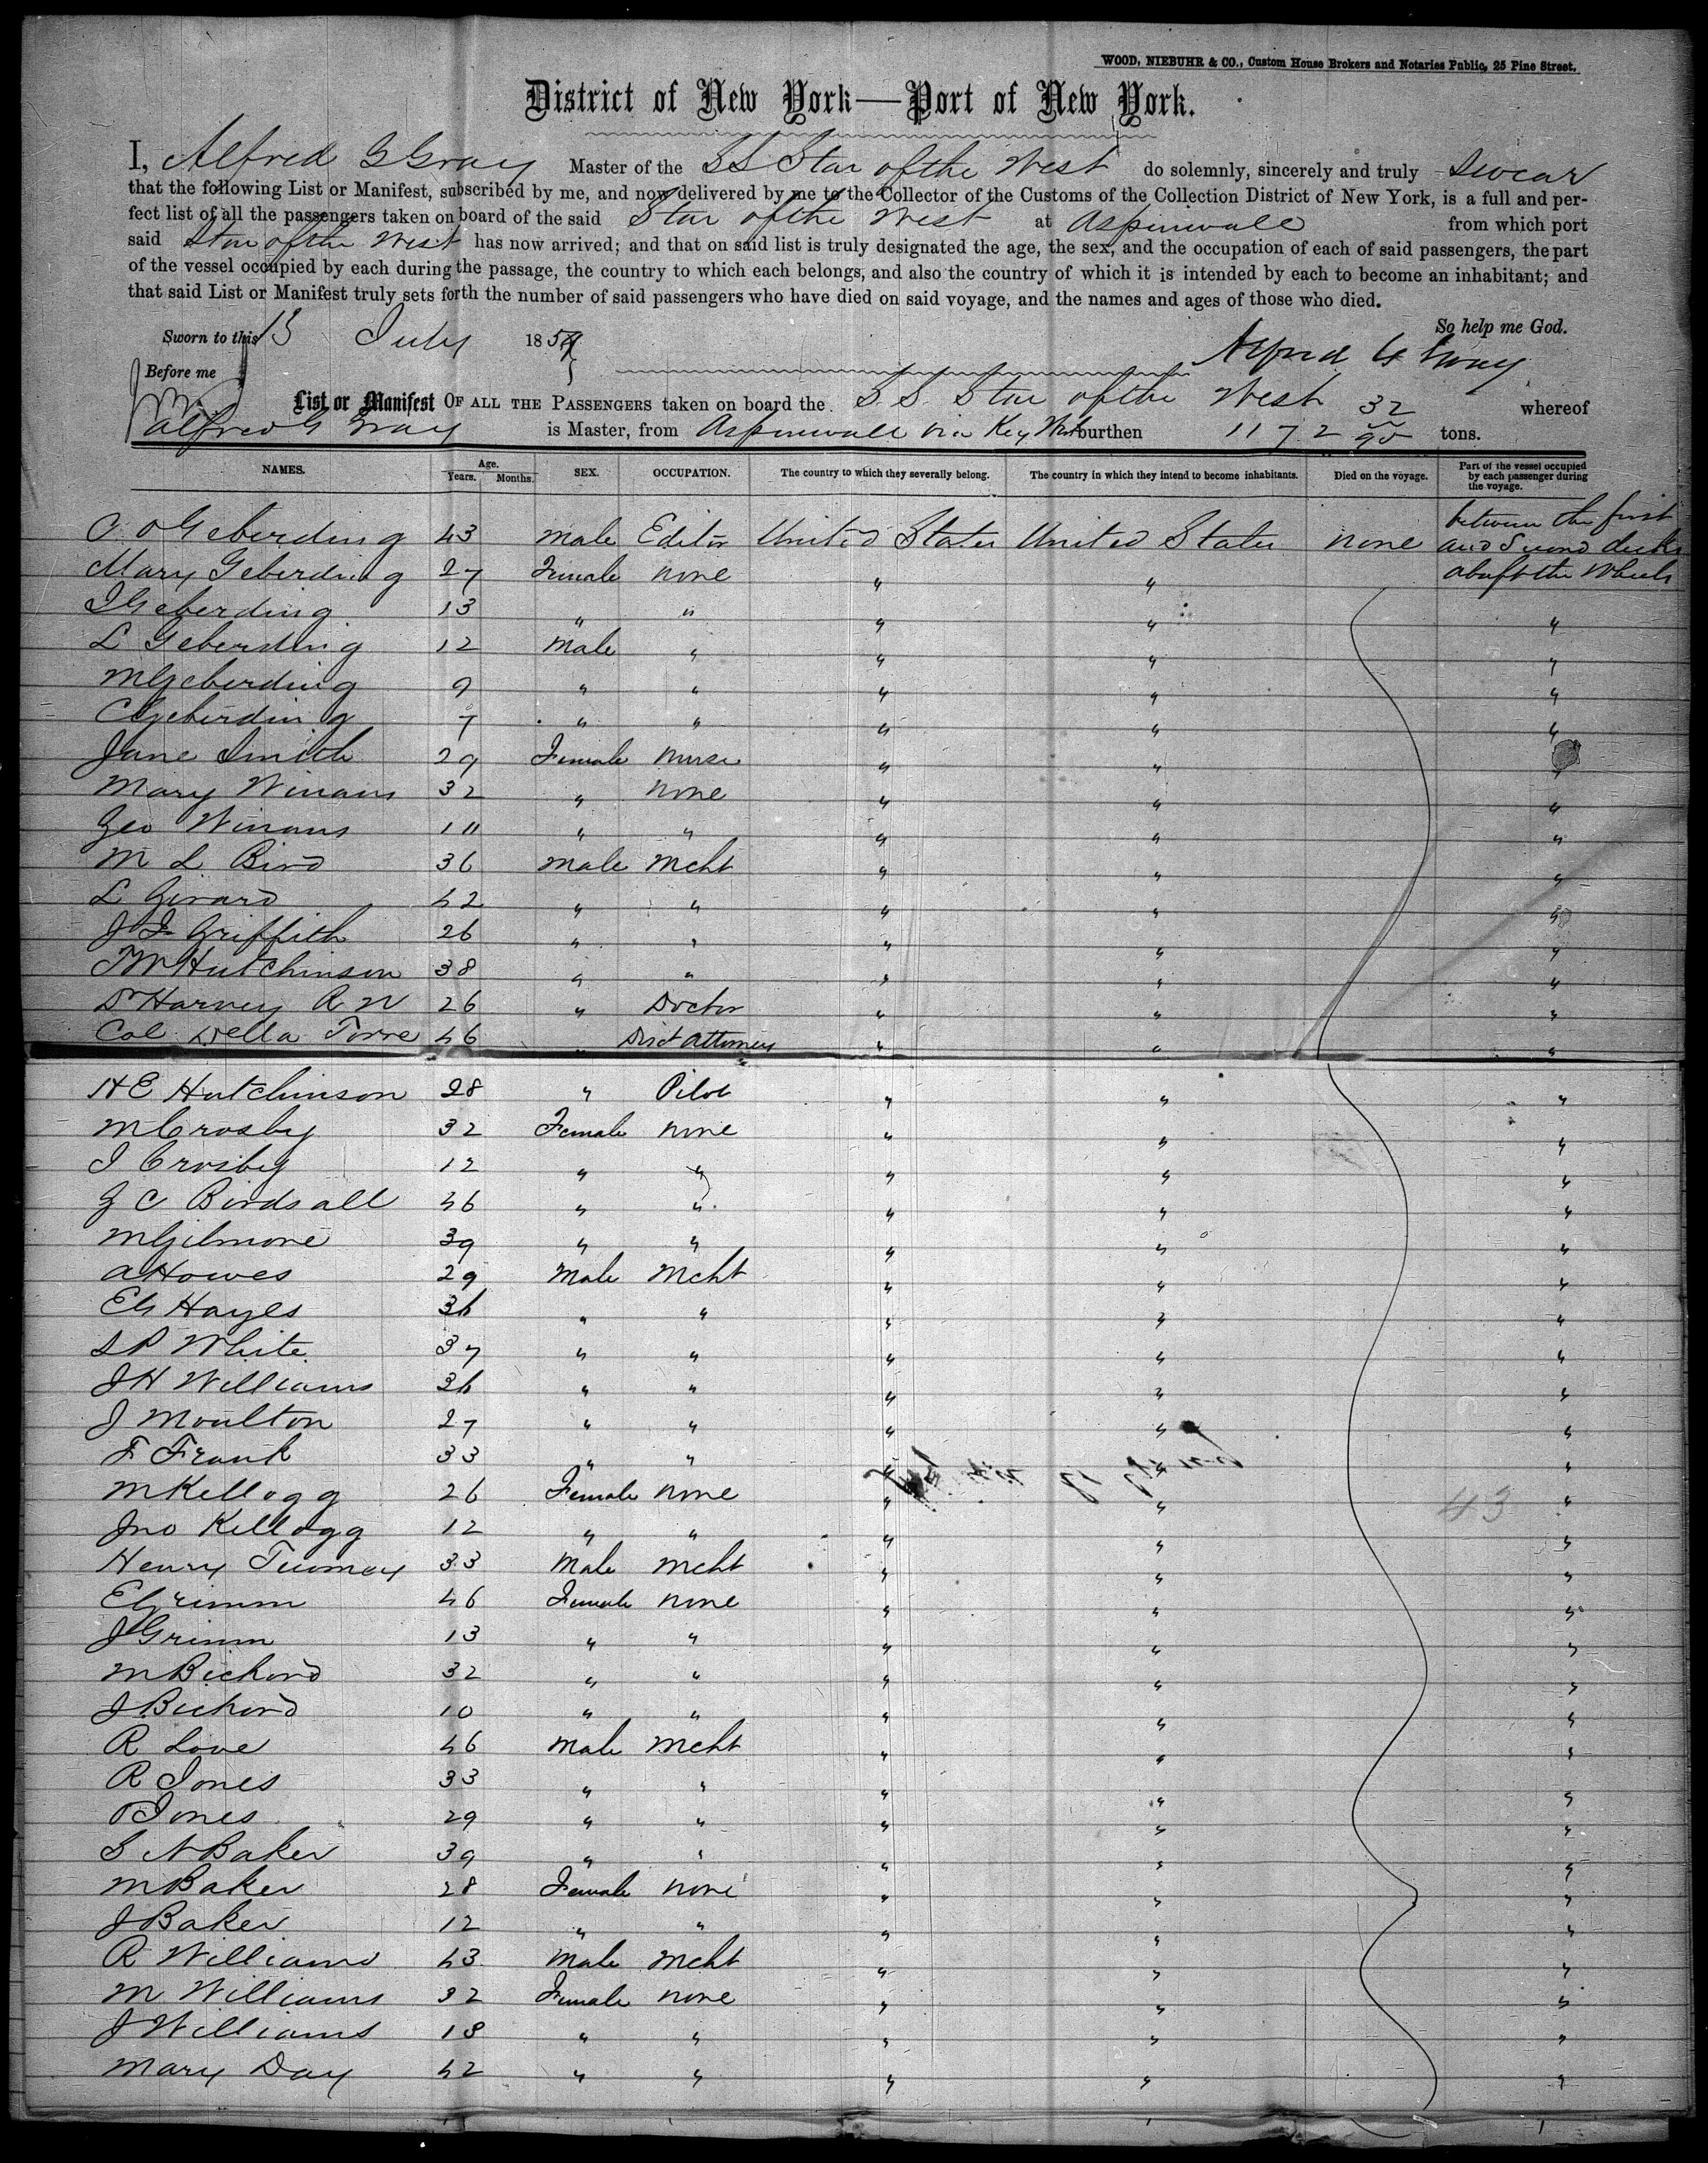 WOOD, NIEBUHR & CO., Custom House Brokers and Notaries Public, 25 Pine Street.
District of New York—Port of New York.
I, Alfred G Gray Master of the SS Star of the West do solemnly, sincerely and truly swear
that the following List or Manifest, subscribed by me, and now delivered by me to the Collector of the Customs of the Collection District of New York, is a full and per-
fect list of all the passengers taken on board of the said Star of the West at Aspinwall from which port
said Star of the West has now arrived; and that on said list is truly designated the age, the sex, and the occupation of each of said passengers, the part
of the vessel occupied by each during the passage, the country to which each belongs, and also the country of which it is intended by each to become an inhabitant; and
that said List or Manifest truly sets forth the number of said passengers who have died on said voyage, and the names and ages of those who died.
So help me God.
Sworn to this 13 July 1859
Alfred G Gray
Before me
List or Manifest OF ALL THE PASSENGERS taken on board the S.S. Star of the West whereof
Alfred G Gray is Master, from Aspinwall via Key West burthen 1172 32/95 tons.
NAMES. Age. Years. Months. SEX. OCCUPATION. The country to which they severally belong. The country in which they intend to become inhabitants. Died on the voyage. Part of the vessel occupied by each passenger during the voyage.
C O Geberding 43 male Editor United States United States none between the first and second decks abaft the wheels
Mary Geberding 27 Female none " "
I Geberding 13 " " " " "
L Geberding 12 male " " " "
M Geberding 9 " " " " "
C Geberding 7 " " " " "
Jane Smith 29 Female nurse " " "
Mary Winans 32 " none " " "
Geo Winans 11 " " " " "
M L Bird 36 male mcht " " "
L Girard 42 " " " " "
J F Griffith 26 " " " " "
T W Hutchinson 38 " " " " "
Dr Harvey R N 26 " Doctor " " "
Col Della Torre 46 " Dist Attorney " " "
H E Hutchinson 28 " Pilot " " "
M Crosby 32 Female none " " "
I Crosby 12 " " " " "
G C Birdsall 46 " " " " "
M Gilmore 39 " " " " "
A Howes 29 male mcht " " "
E G Hayes 36 " " " " "
S P White 37 " " " " "
J H Williams 36 " " " " "
J Moulton 27 " " " " "
F Frank 33 " " " " "
M Kellogg 26 Female none " " "
43
Jno Kellogg 12 " " " " "
Henry Twomey 33 male mcht " " "
E Grimm 46 Female none " " "
J Grimm 13 " " " " "
M Bickord 32 " " " " "
J Bickord 10 " " " " "
R Love 46 male mcht " " "
R Jones 33 " " " " "
O Jones 29 " " " " "
S N Baker 39 " " " " "
M Baker 28 Female none " " "
J Baker 12 " " " " "
R Williams 43 male mcht " " "
M Williams 32 Female none " " "
J Williams 13 " " " " "
Mary Day 42 " " " " "